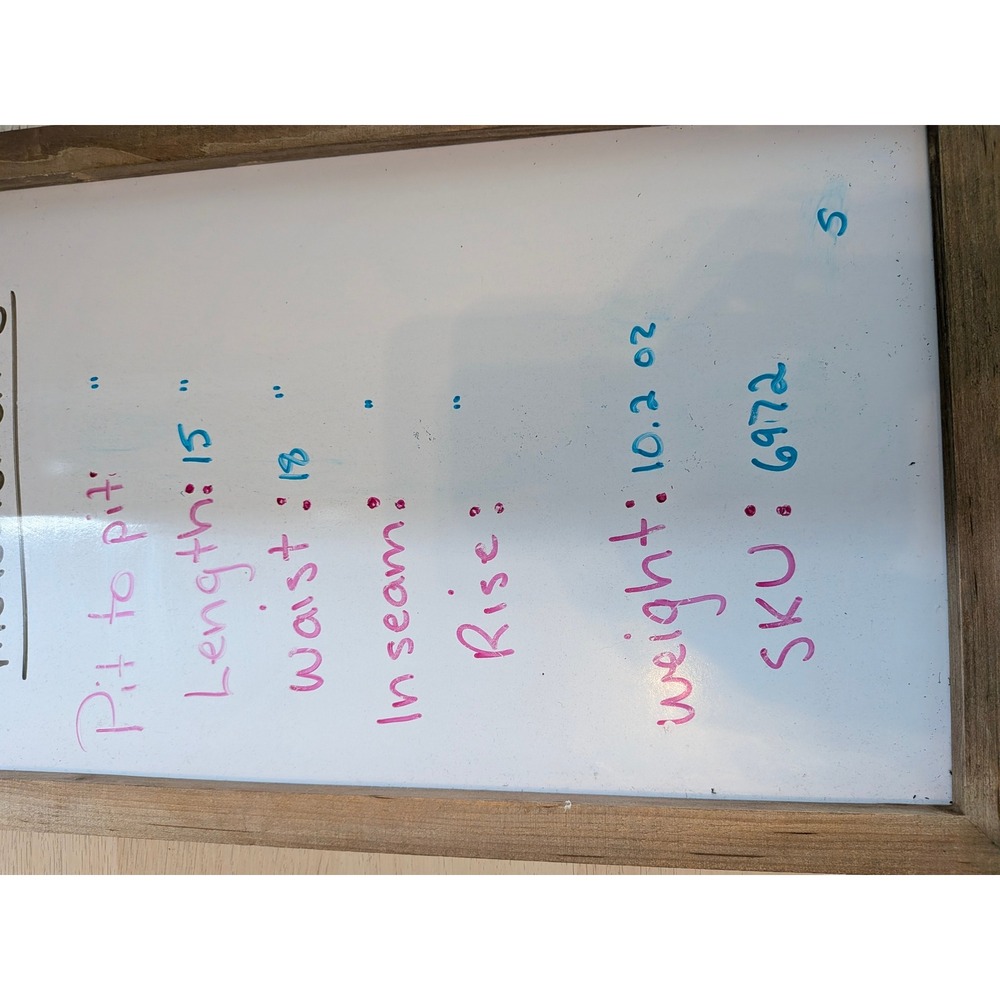 Pit to pit: "
Length: 15 "
waist: 18 "
Inseam: "
Rise: "
weight: 10.2 oz
SKU: 6972
5